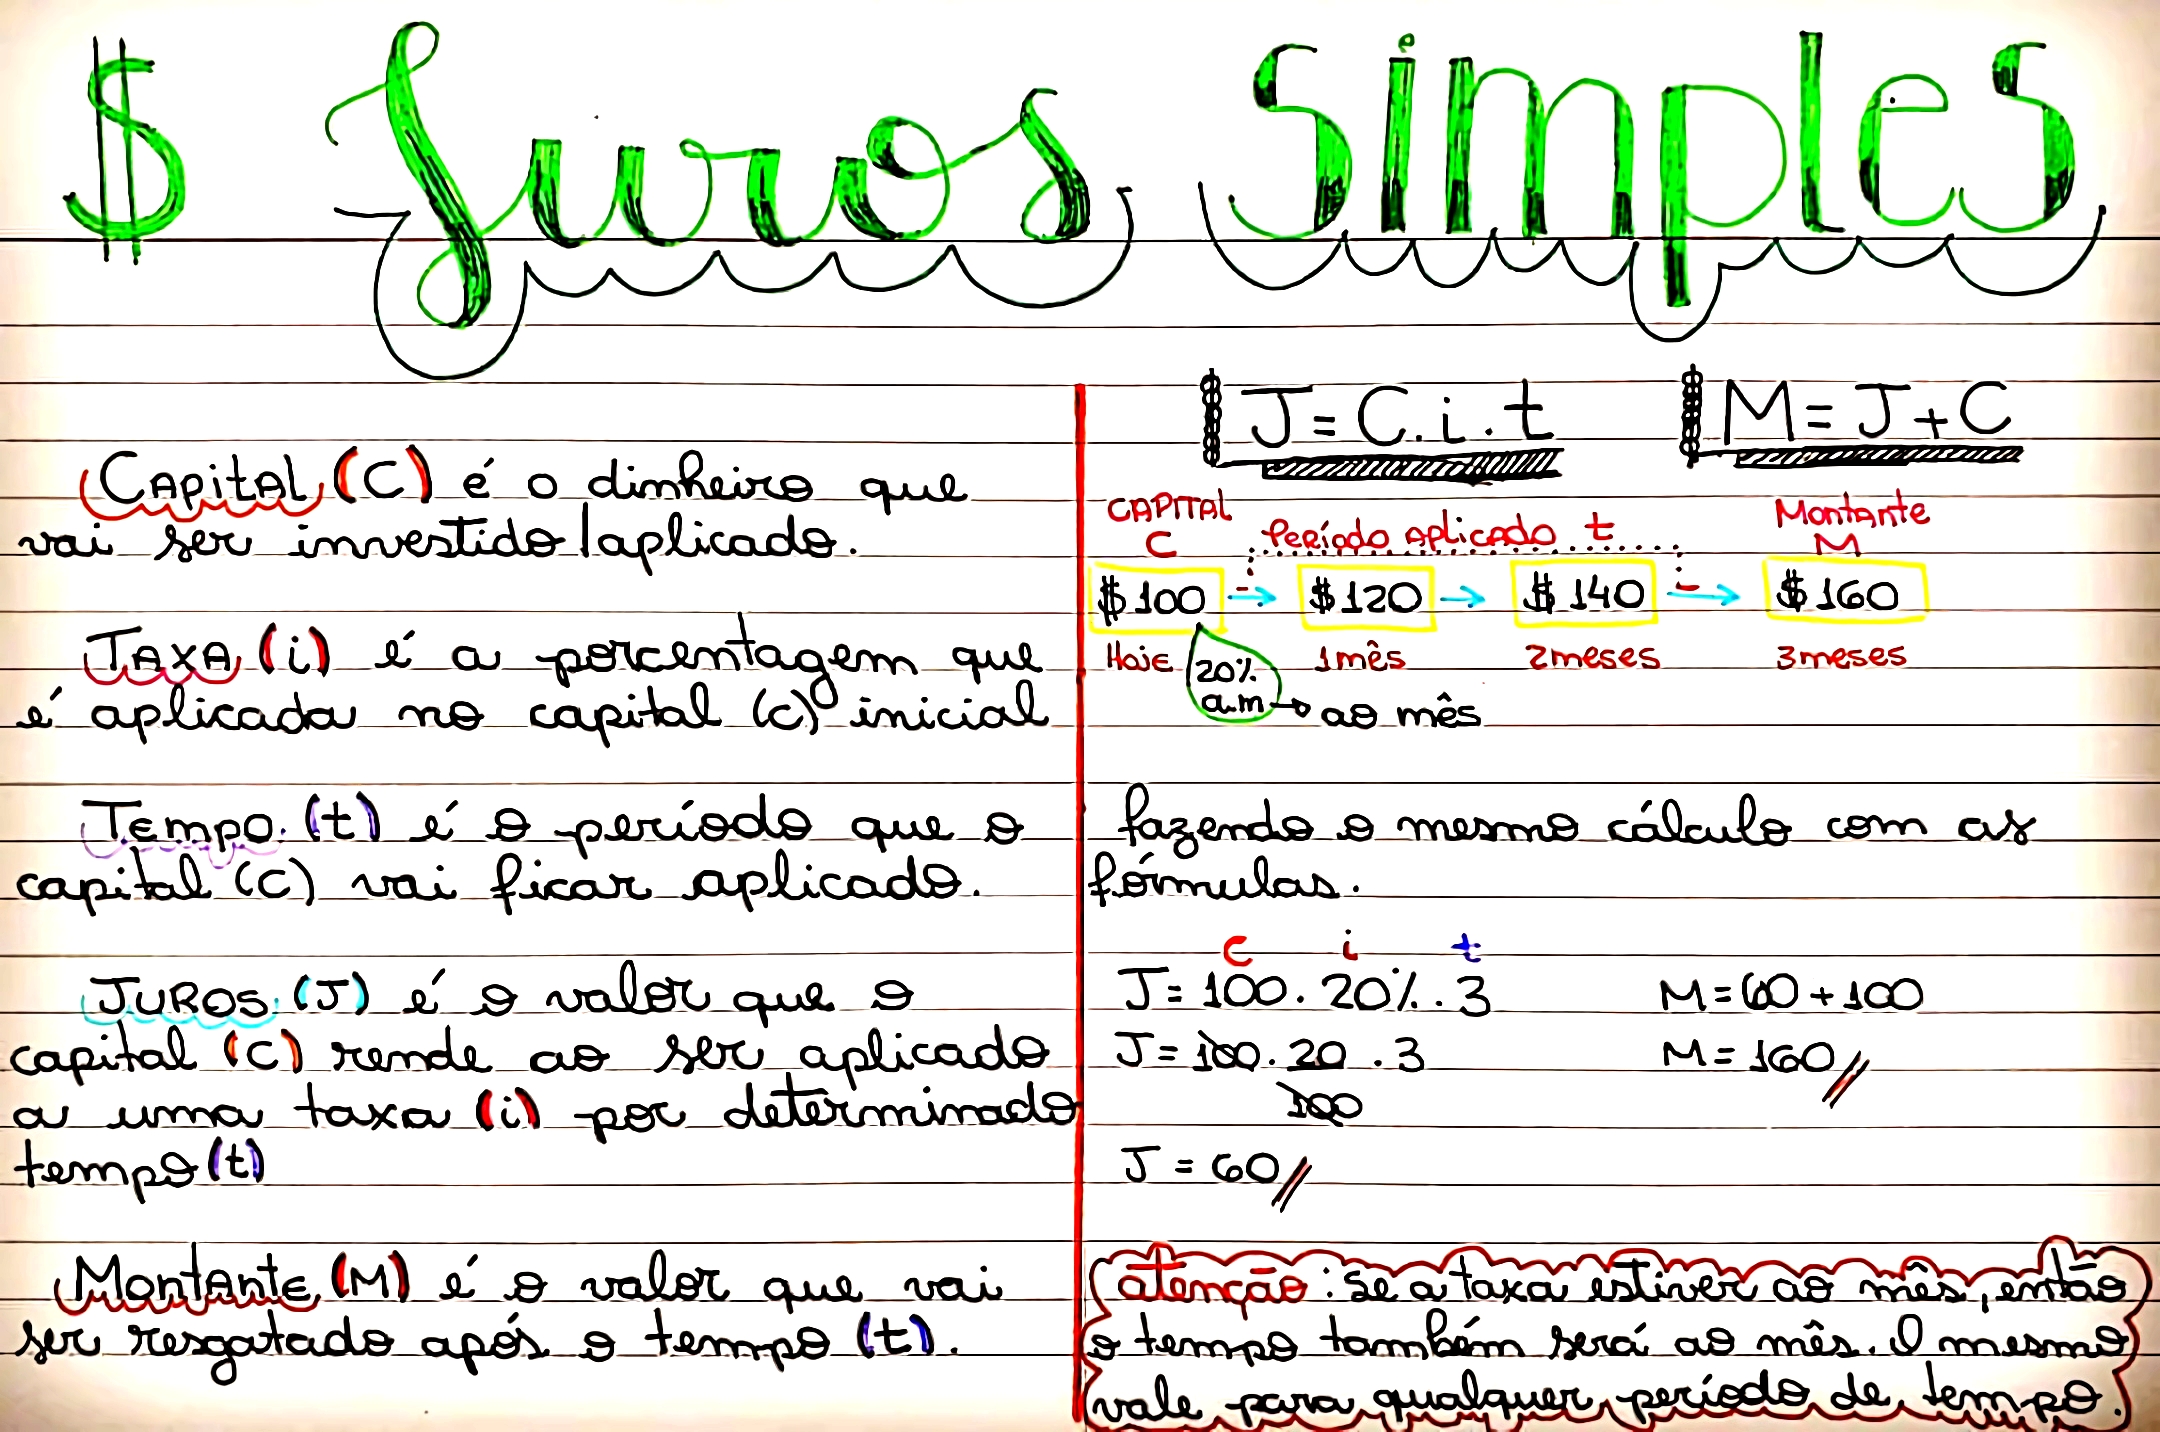 $ Juros Simples
Capital (C) é o dinheiro que
vai ser investido/aplicado.
Taxa (i) é a porcentagem que
é aplicada no capital (c) inicial
Tempo (t) é o período que o
capital (C) vai ficar aplicado.
Juros (J) é o valor que o
capital (C) rende ao ser aplicado
a uma taxa (i) por determinado
tempo (t)
Montante (M) é o valor que vai
ser resgatado após o tempo (t).
J = C . i . t
M = J + C
CAPITAL
C
Período Aplicado t
Montante
M
$ 100 → $ 120 → $ 140 → $ 160
Hoje
1 mês
2 meses
3 meses
20%
a.m → ao mês
fazendo o mesmo cálculo com as
fórmulas.
C i t
J = 100 . 20% . 3
J = 100 . 20 . 3
100
J = 60//
M = 60 + 100
M = 160//
atenção: se a taxa estiver ao mês, então
o tempo também será ao mês. O mesmo
vale para qualquer período de tempo.